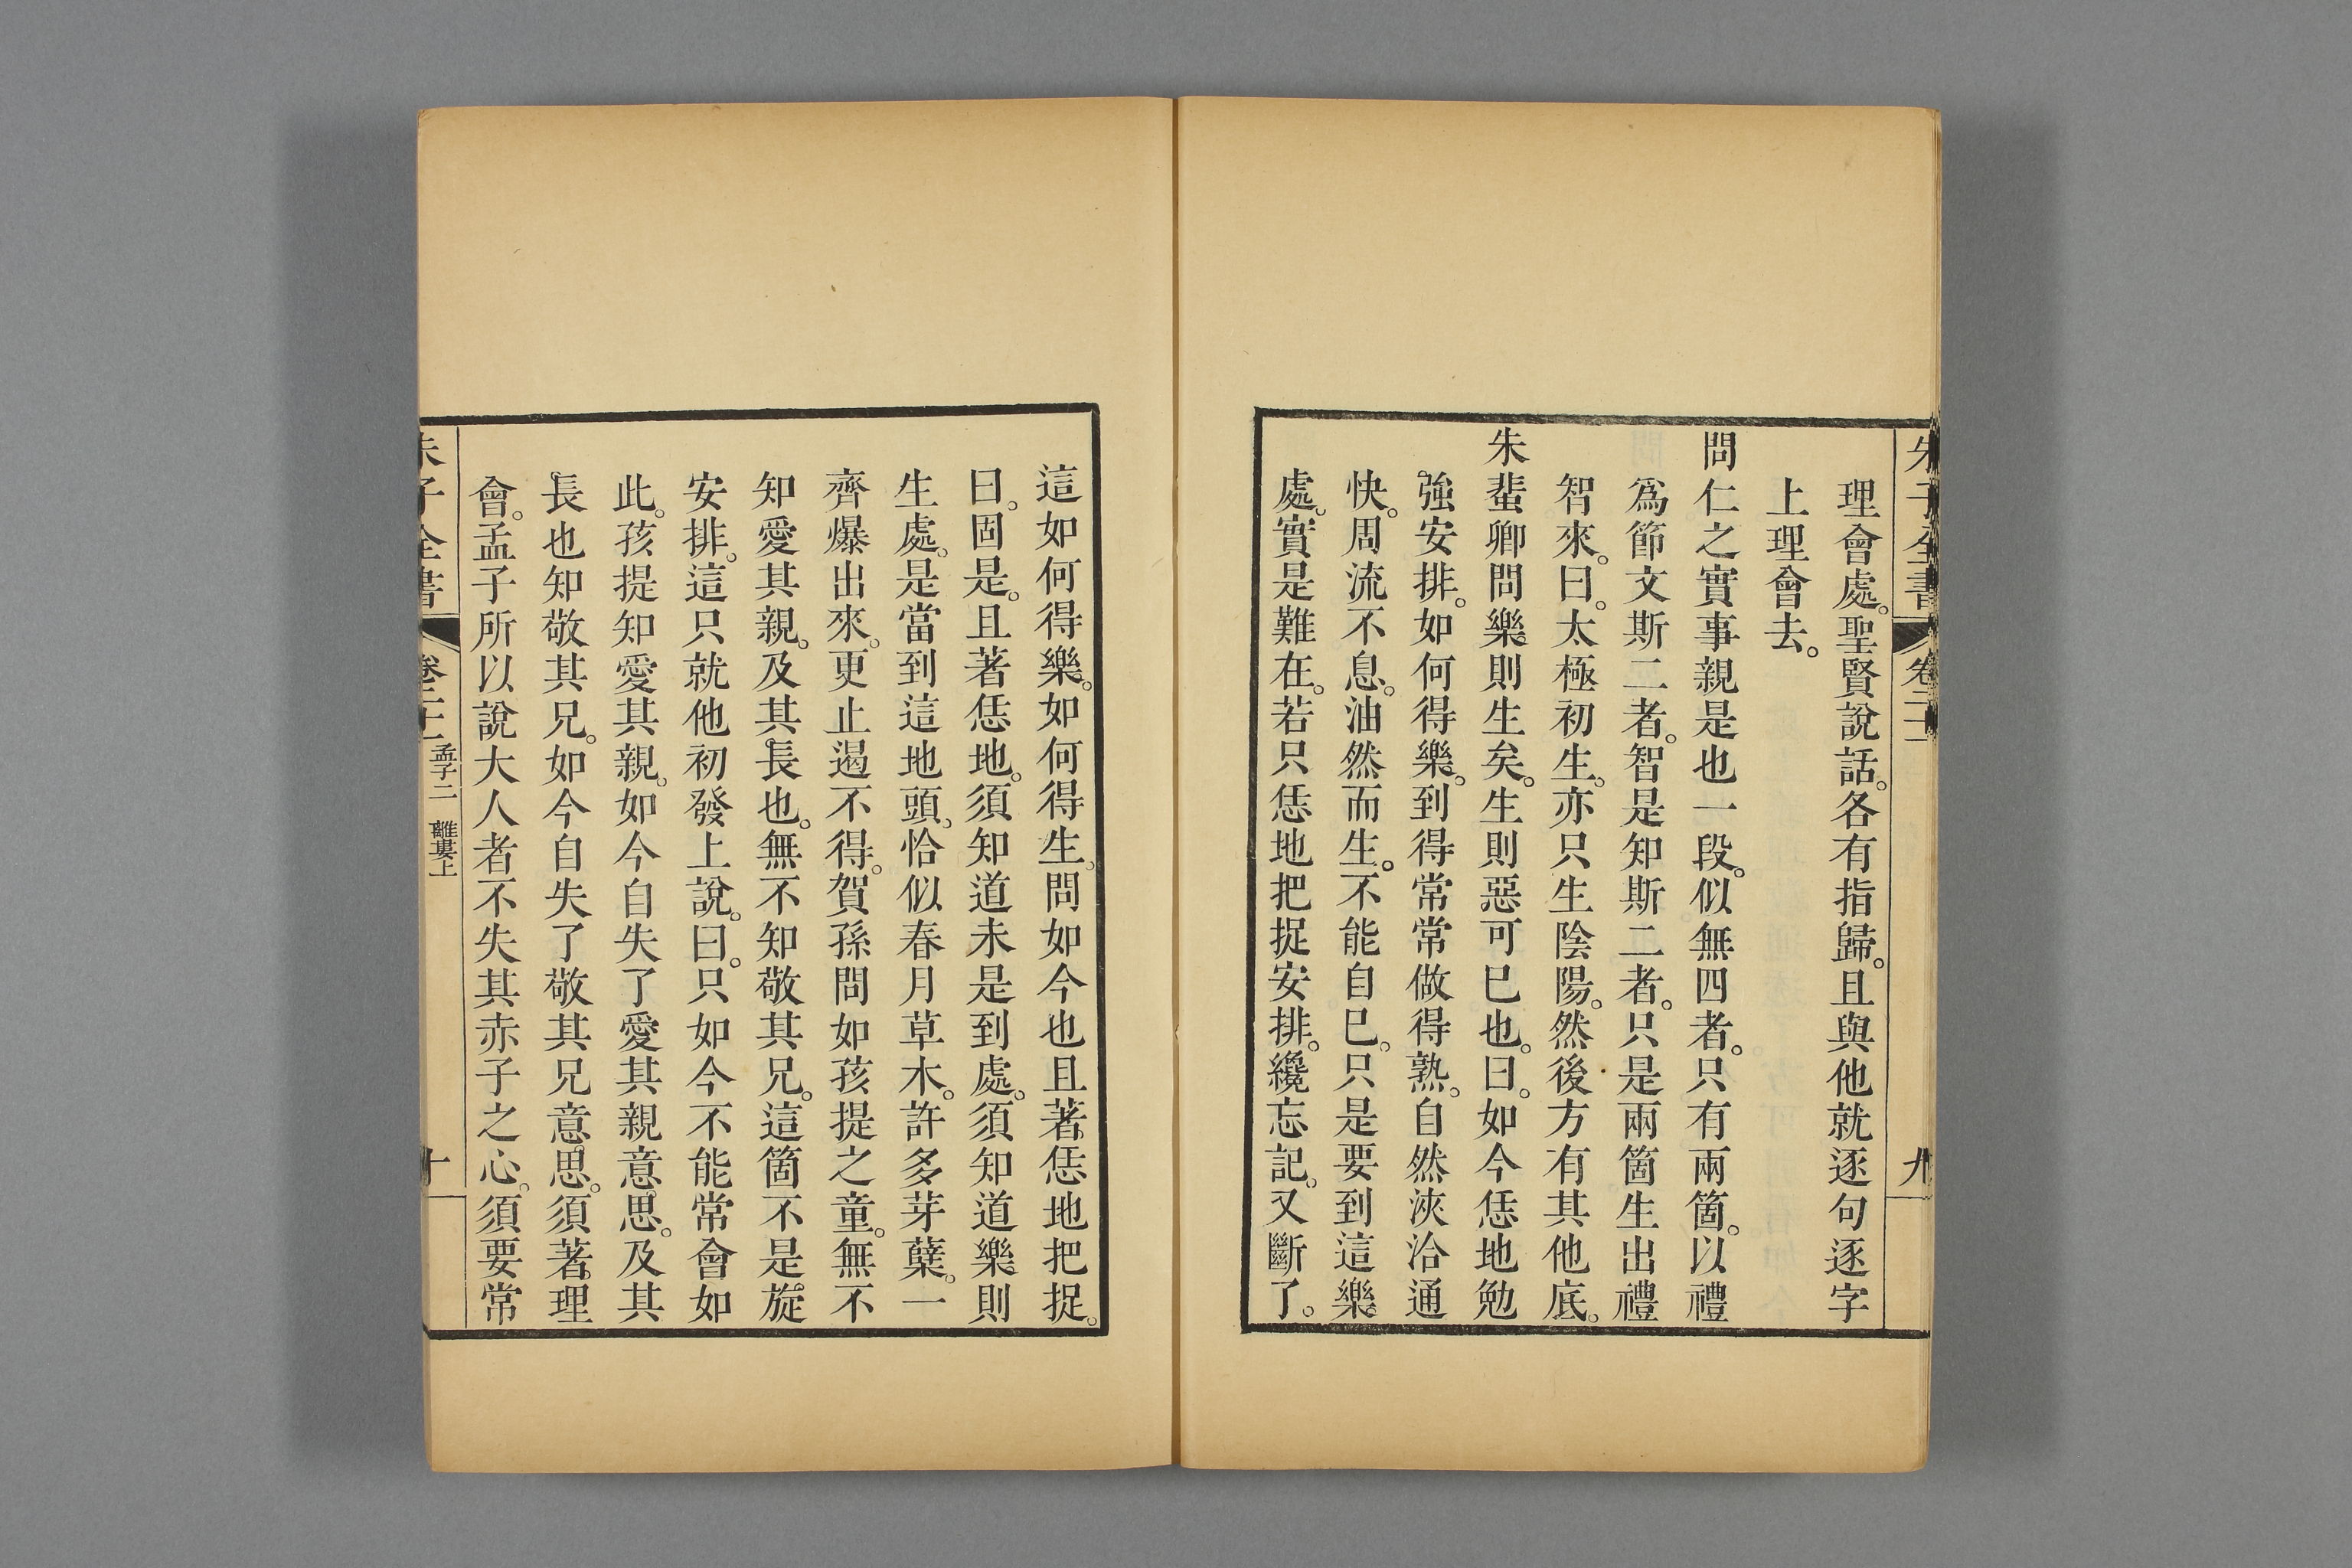 朱子全書 卷二十一 九
理會處。聖賢說話。各有指歸。且與他就逐句逐字
上理會去。
問仁之實事親是也一段。似無四者。只有兩箇。以禮
爲節文斯二者。智是知斯二者。只是兩箇生出禮
智來。曰。太極初生。亦只生陰陽。然後方有其他底。
朱蜚卿問樂則生矣。生則惡可巳也。曰。如今恁地勉
強安排。如何得樂。到得常常做得熟。自然浹洽通
快。周流不息。油然而生。不能自巳。只是要到這樂
處。實是難在。若只恁地把捉安排。纔忘記。又斷了。
這如何得樂。如何得生。問如今也且著恁地把捉。
曰。固是。且著恁地。須知道未是到處。須知道樂則
生處。是當到這地頭。恰似春月草木。許多芽蘗。一
齊爆出來。更止遏不得。賀孫問如孩提之童。無不
知愛其親。及其長也。無不知敬其兄。這箇不是旋
安排。這只就他初發上說。曰。只如今不能常會如
此。孩提知愛其親。如今自失了愛其親意思。及其
長也知敬其兄。如今自失了敬其兄意思。須著理
會。孟子所以說大人者不失其赤子之心。須要常
朱子全書 卷二十一 孟子二 離婁上 十